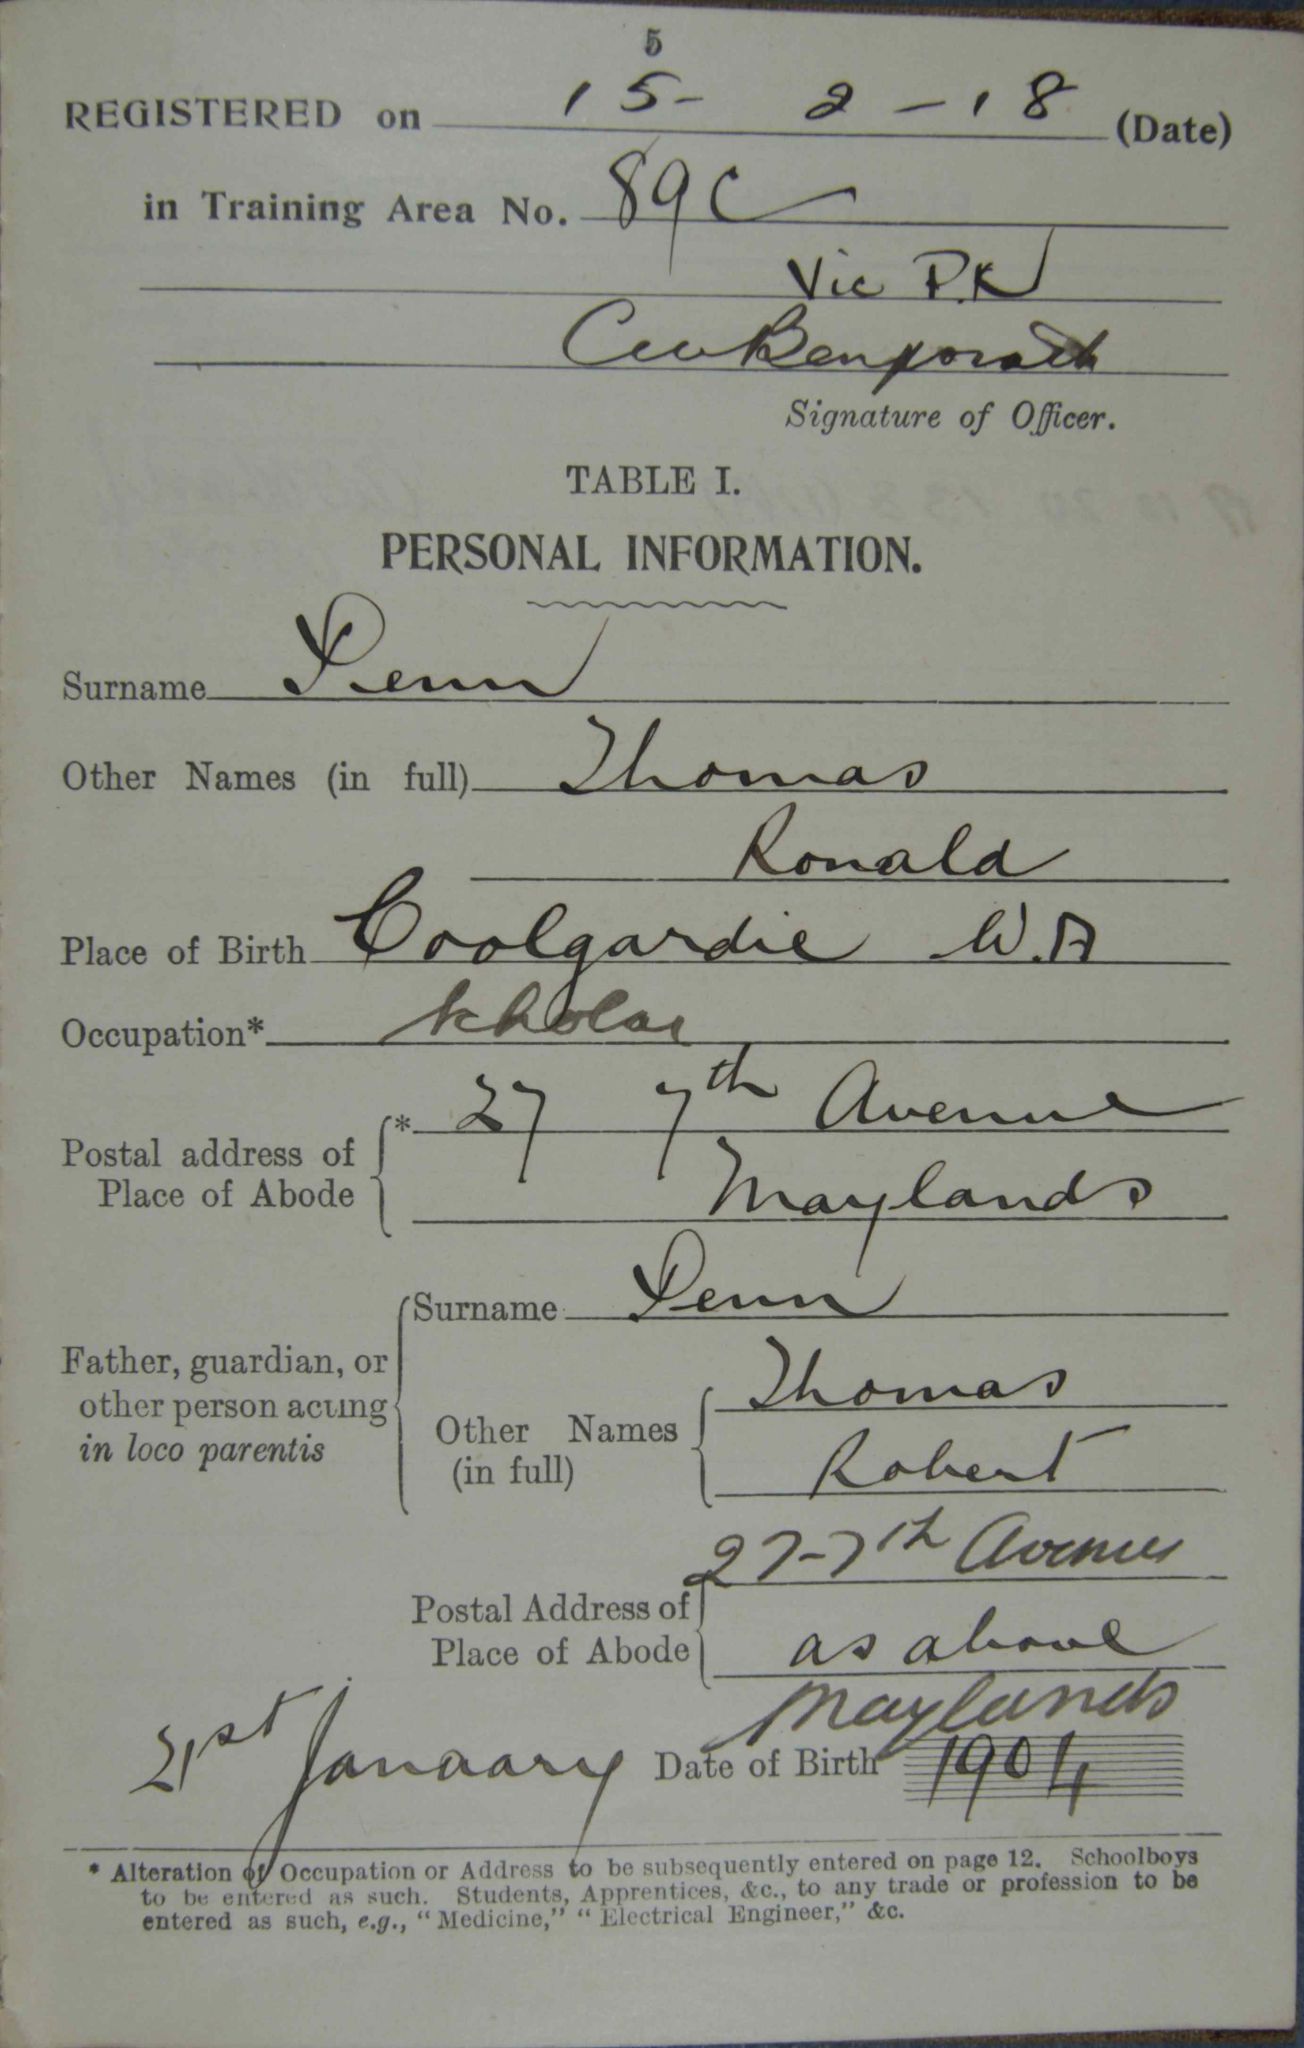 5
REGISTERED on 15- 2-18 (Date)
in Training Area No. 89C
Vic P.K
Signature of Officer.
TABLE I.
PERSONAL INFORMATION.
Surname Penn
Other Names (in full) Thomas
Ronald
Place of Birth Coolgardie W.A
Occupation* Scholar
Postal address of Place of Abode * 27 7th Avenue
Maylands
Father, guardian, or other person acting in loco parentis
Surname Penn
Other Names (in full) Thomas
Robert
27-7th Avenue
Postal Address of Place of Abode as above
Maylands
21st January Date of Birth 1904
* Alteration of Occupation or Address to be subsequently entered on page 12. Schoolboys
to be entered as such. Students, Apprentices, &c., to any trade or profession to be
entered as such, e.g., "Medicine," "Electrical Engineer," &c.